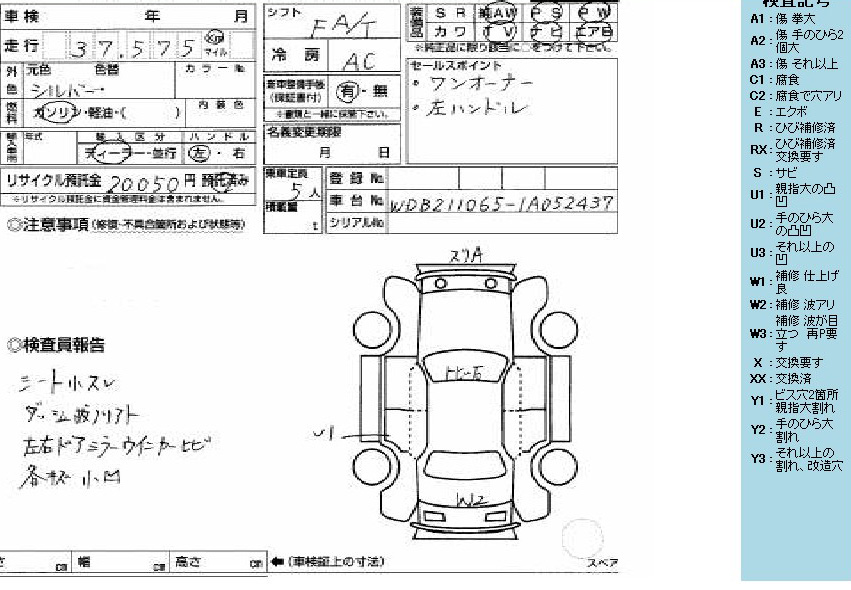 車検 年 月
走行 37,575 Km マイル
外色 元色 色替 カラー№
シルバー
燃料 ガソリン・軽油・( ) 内装色
輸入車用 年式 輸入区分 ハンドル
ディーラー・並行 左・右
リサイクル預託金 20050 円 預託済み
※リサイクル預託金に資金管理料金は含まれません。
シフト FA/T
冷房 AC
新車整備手帳(保証書付) 有・無
※書類と一緒に保管下さい。
名義変更期限
月 日
乗車定員 5人
積載量 t
装備品 SR 純AW PS PW
カワ TV ナビ エアB
※純正品に限り該当に○をつけて下さい。
セールスポイント
・ワンオーナー
・左ハンドル
登録 №
車台 № WDB211065-1A052437
シリアル№
◎注意事項(修復・不具合箇所および状態等)
◎検査員報告
シート小スレ
左右ドアミラーウインカーヒビ
小凹
スリA
トビ石
U1
W2
さ cm 幅 cm 高さ cm ←(車検証上の寸法)
スペア
検査記号
A1:傷 拳大
A2:傷 手のひら2個大
A3:傷 それ以上
C1:腐食
C2:腐食で穴アリ
E:エクボ
R:ひび補修済
RX:ひび補修済 交換要す
S:サビ
U1:親指大の凸凹
U2:手のひら大の凸凹
U3:それ以上の凹
W1:補修 仕上げ良
W2:補修 波アリ
W3:補修 波が目立つ 再P要す
X:交換要す
XX:交換済
Y1:ビス穴2箇所 親指大割れ
Y2:手のひら大割れ
Y3:それ以上の割れ、改造穴